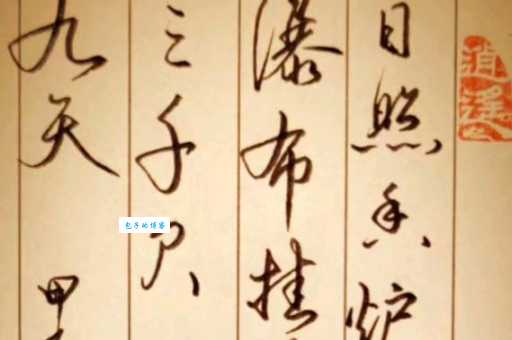 日照香炉
瀑布挂
三千尺
九天
甲
逍遥
包子的博客